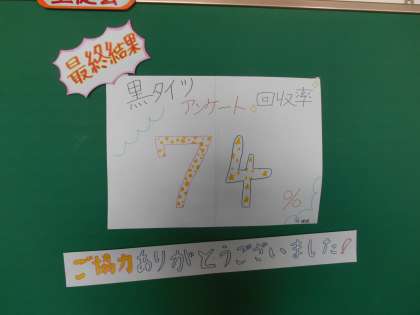 生徒会
最終結果
黒タイツ
アンケート。回収率
74
%
ご協力ありがとうございました!